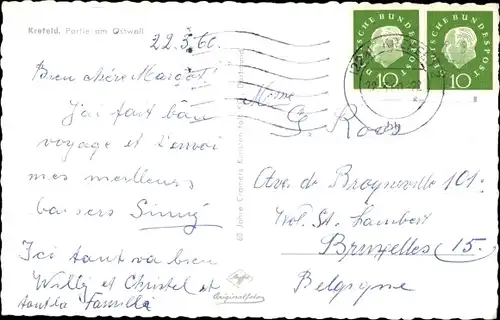 Krefeld. Partie am Ostwall
22.3.60.
Bien chère Margot!
J'ai fait bon
voyage et t'envoi
mes meilleurs
baisers
Ici tout va bien
Willy et Christel et
toute la Famille
60 Jahre Cramers Kunstanstalt KG., Dortmund
Agfa
Originalfoto
DEUTSCHE BUNDESPOST
10
DEUTSCHE BUNDESPOST
10
Mme
G.
Ave. de Broqueville 101.
Wol. St. Lambert
Bruxelles (15.)
Belgique